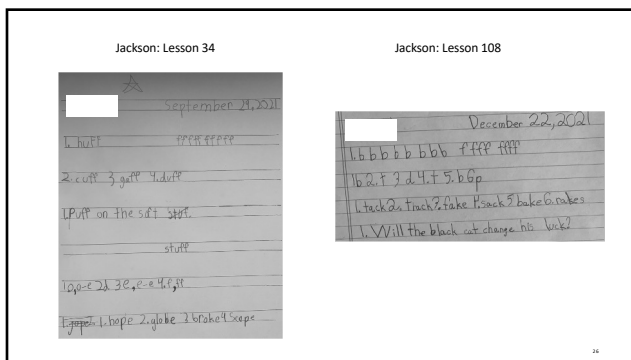 Jackson: Lesson 34
September 29, 2021
1. huff fffffffff
2. cuff 3. gaff 4. duff
1. Puff on the soft
stuff
3 e, e-e 4. f, ff
1. hope 2. globe 3 broke 4
Jackson: Lesson 108
December 22, 2021
1. b b b b b b b b f f f f f f f f
1b 2. t 3 d 4. t 5. b 6p
1. tack 2. track 3. fake 4. sack 5 bake 6. rakes
1. Will the black cat change his luck?
26